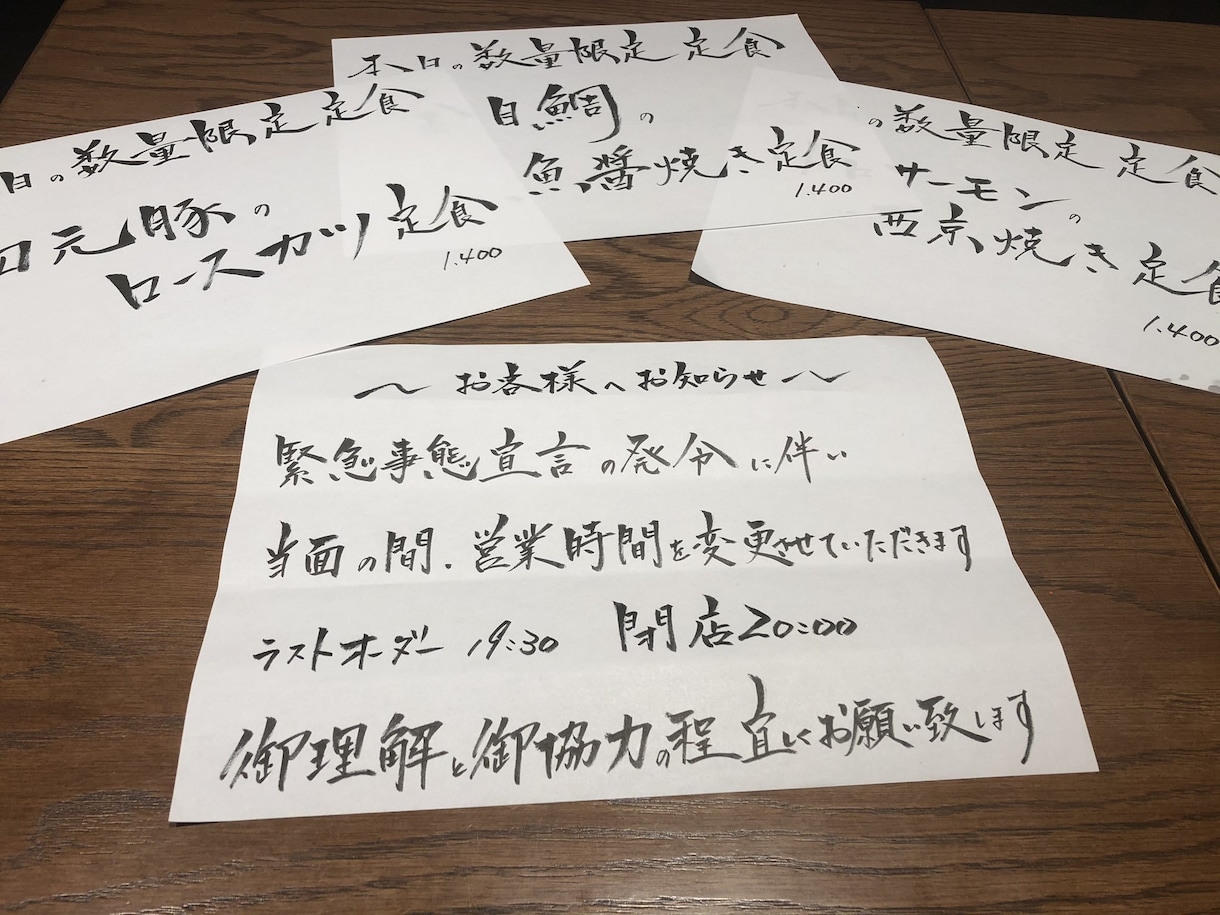 本日の数量限定 定食
目鯛の
魚醤焼き定食
1.400
日の数量限定 定食
四元豚の
ロースカツ定食
1.400
の数量限定 定食
サーモンの
西京焼き定食
1.400
〜 お客様へお知らせ 〜
緊急事態宣言の発令に伴い
当面の間、営業時間を変更させていただきます
ラストオーダー 19:30 閉店20:00
御理解と御協力の程宜しくお願い致します